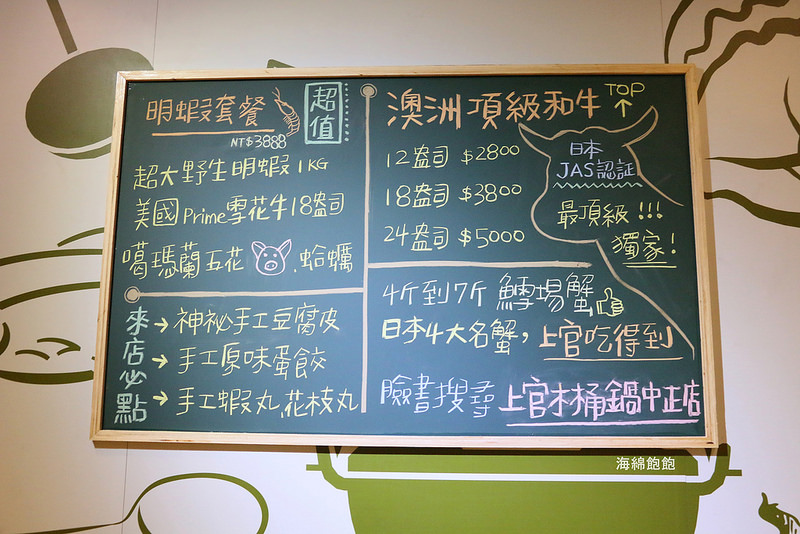 明蝦套餐 超值
NT$3888
超大野生明蝦 1KG
美國Prime雪花牛18盎司
噶瑪蘭五花、蛤蠣
來店必點
→ 神祕手工豆腐皮
→ 手工原味蛋餃
→ 手工蝦丸、花枝丸
澳洲頂級和牛 TOP
↑
12盎司 $2800
18盎司 $3800
24盎司 $5000
日本
JAS認証
最頂級!!!
獨家!
4斤到7斤 鱈場蟹
日本4大名蟹，上官吃得到
臉書搜尋 上官木桶鍋中正店
海綿飽飽